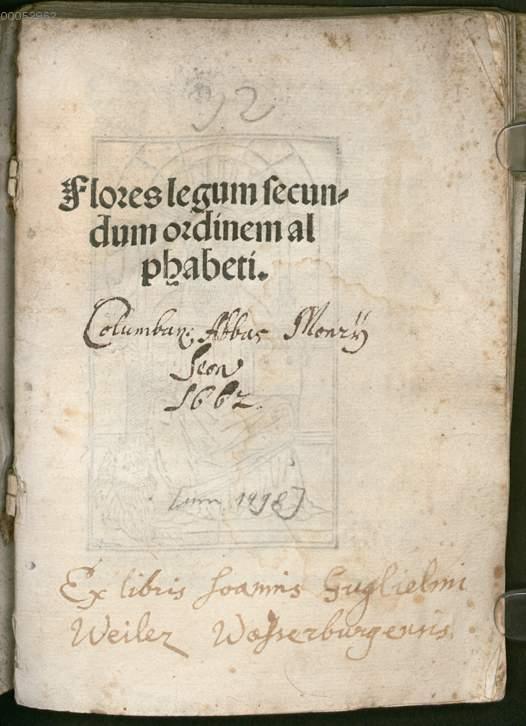 00053862
92
Flores legum secun-
dum ordinem al
phabeti.
Columban, Abbas Monrij
Seon
1662.
[um 1498]
Ex libris Joannis Guglielmi
Weiler Wasserburgensis.